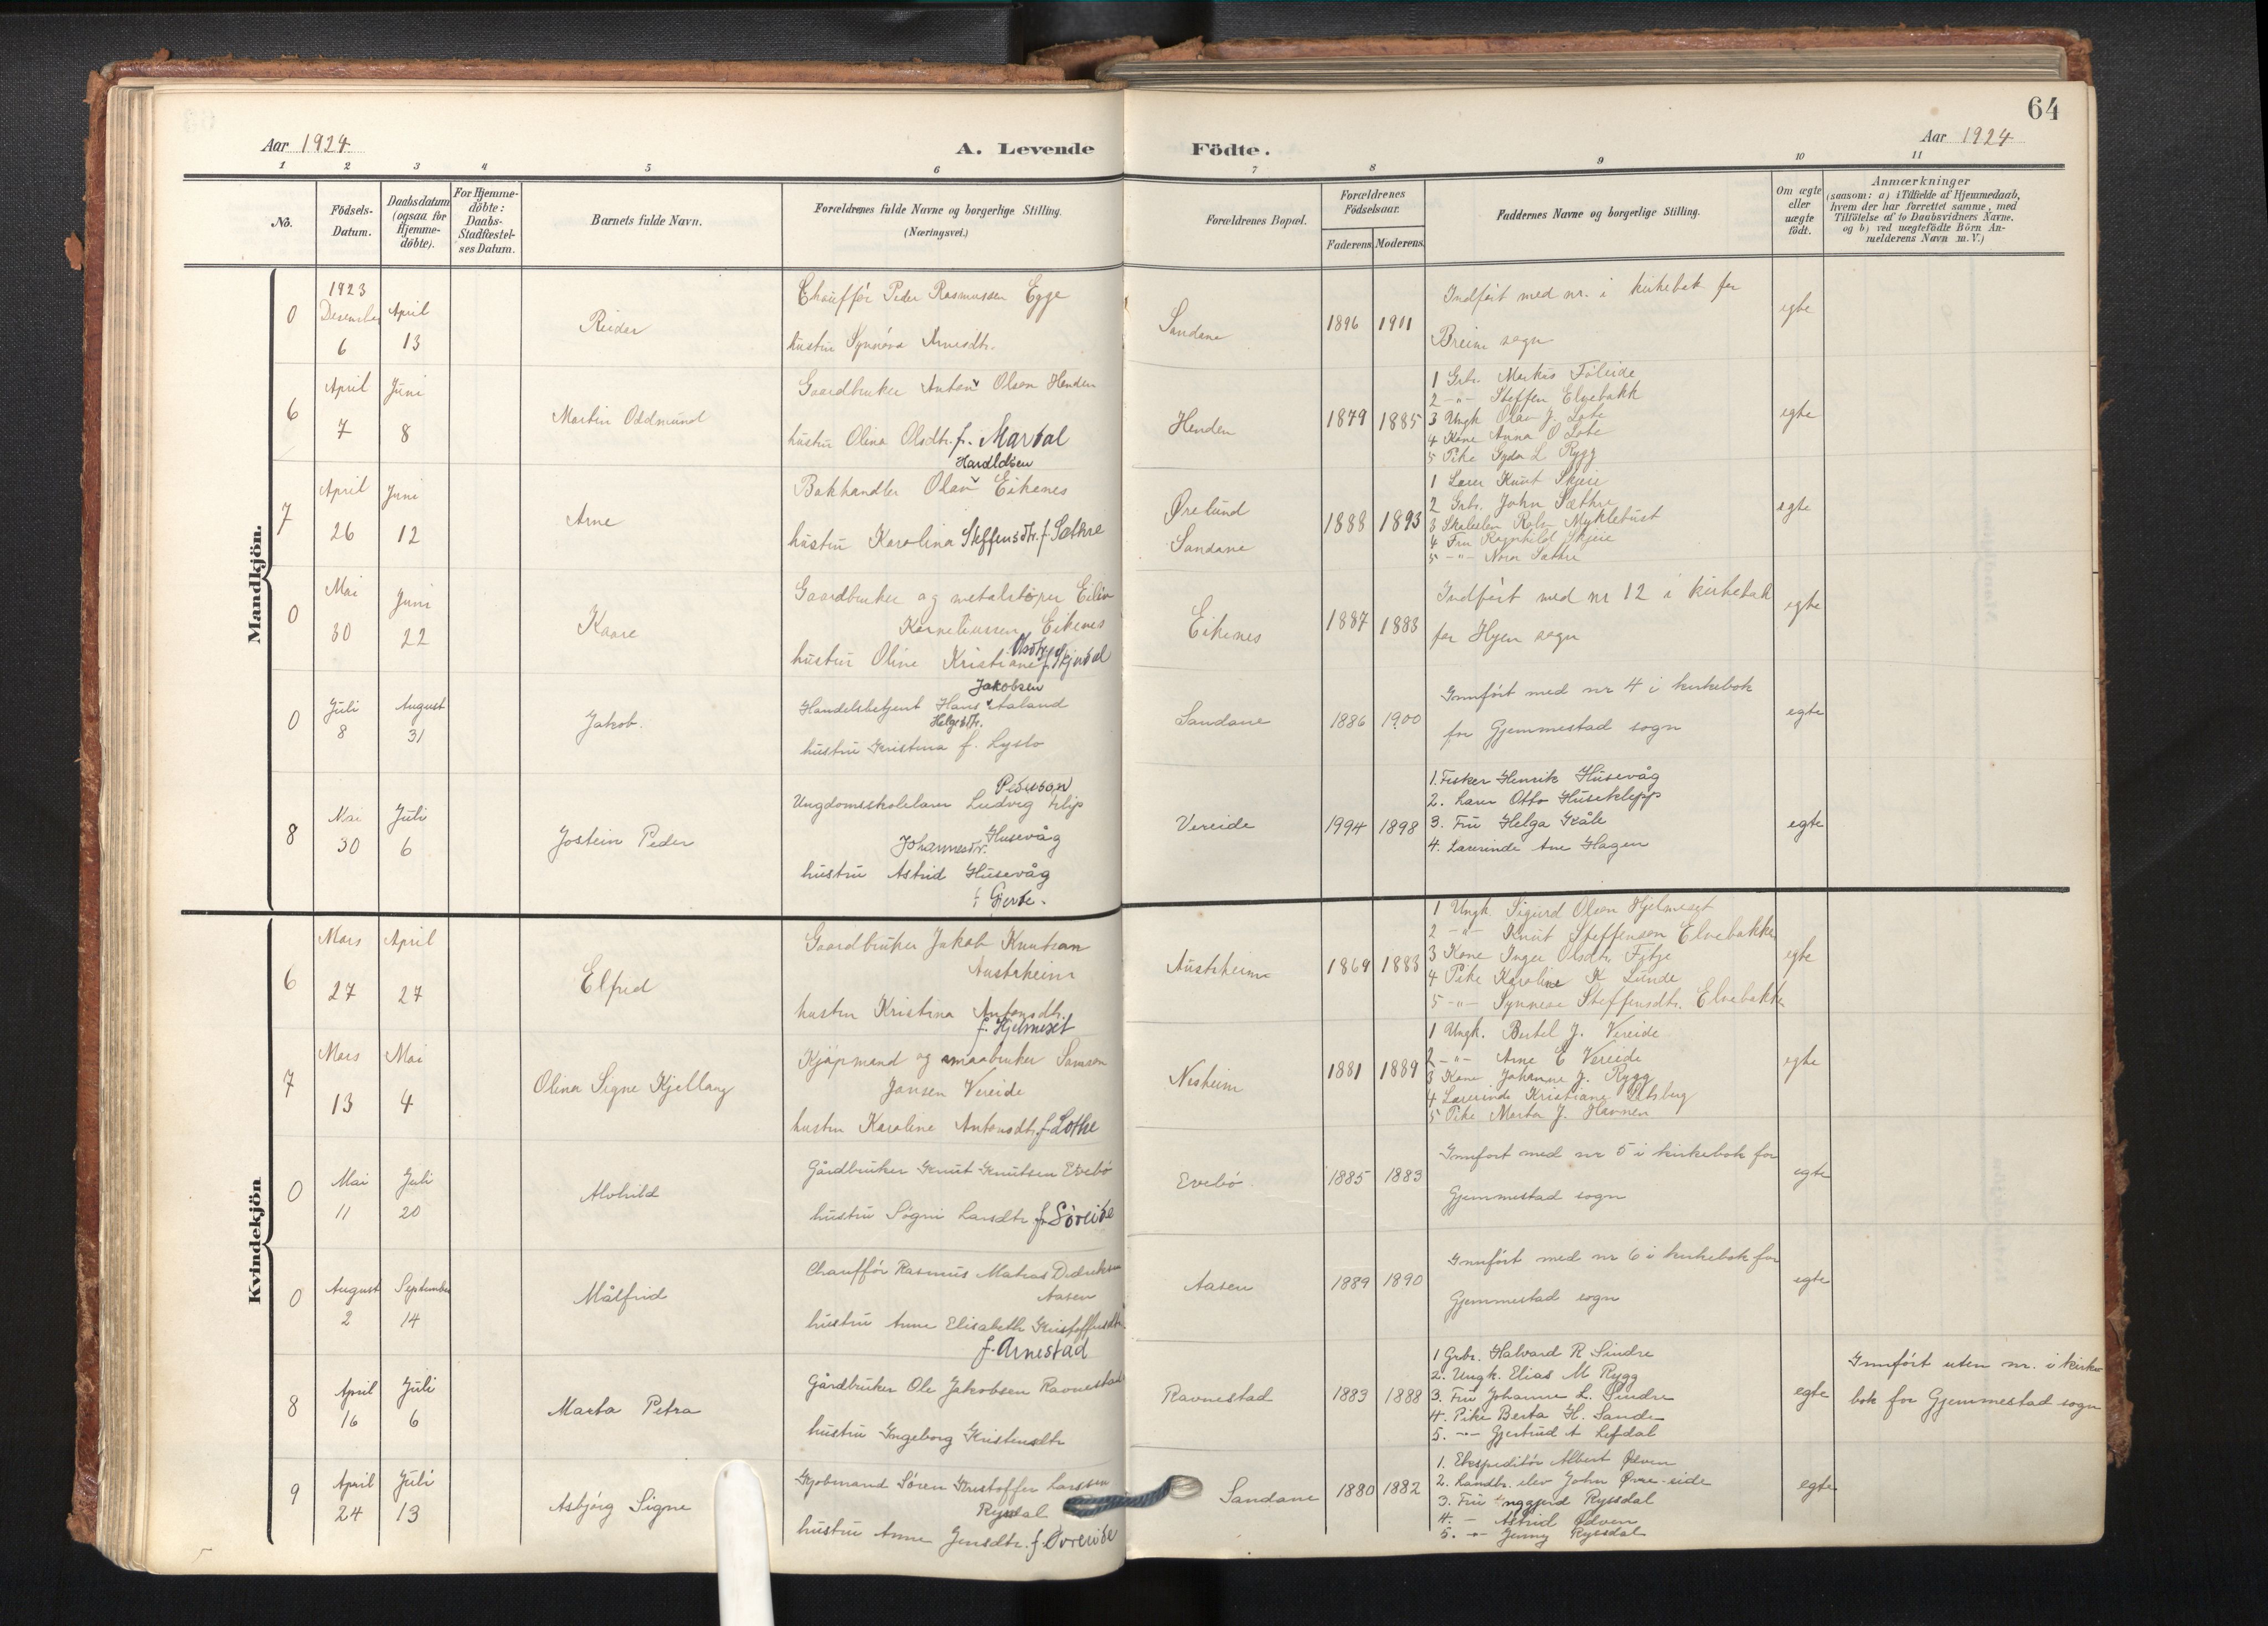 64
Aar 1924
A. Levende Fødte.
Aar 1924
1 2 3 4 5 6 7 8 9 10 11
No.
Födsels-Datum.
Daabsdatum (ogsaa for Hjemme-döbte).
For Hjemme-döbte: Daabs-Stadfæstel-ses Datum.
Barnets fulde Navn.
Forældrenes fulde Navne og borgerlige Stilling.
(Næringsvei.)
Forældrenes Bopæl.
Forældrenes Födselsaar.
Faderens Moderens
Faddernes Navne og borgerlige Stilling.
Om ægte eller uægte födt.
Anmærkninger
(saasom: a) i Tilfælde af Hjemmedaab,
hvem der har forrettet samme, med
Tilföielse af to Daabsvidners Navne.
og b) ved uægtefödte Börn An-
melderens Navn m.V.)
Mandkjön.
0
1923
Desember 6
April 13
Reidar
Chauffór Peder Rasmussen Egge
hustru Synnóva
Sandane
1896 1911
Indfört med nr. i kirkebok for
Breim sogn
egte
6
April 7
Juni 8
Martin Oddmund
Gaardbruker Anton Olsen Henden
hustru Olina Olsdtr. f. Mardal
Henden
1879 1885
1 Grbr. Markus Föleide
2 -"- Steffen Elvebakk
3 Ungk Olav J. Lote
4 Kone Anna O Lote
5 Pike Gyda L Rygg
egte
7
April 26
Juni 12
Arne
Haraldsen
Bokhandler Olav Eikenes
hustru Karolina Steffensdtr. f. Sæthre
Ørelund
Sandane
1888 1893
1 Lærer Knut Skjeie
2 Grbr. John Sæthre
3 Skoleelev Myklebust
4 Fru Ragnhild Skjeie
5 -"- Nora Sæthre
egte
0
Mai 30
Juni 22
Kaare
Gaardbruker og metalstöper Eiliv
Korneliussen Eikenes
hustru Oline Kristiane Olsdtr. f. Skjerdal
Eikenes
1887 1883
Indfört med nr 12 i kirkebok
for Hyen sogn
egte
0
Juli 8
August 31
Jakob.
Jakobsen
Handelsbetjent Hans Aaland
Helgesdtr.
hustru Kristina f. Lyslo
Sandane
1886 1900
Innfört med nr 4 i kirkebok
for Gjemmestad sogn
egte
8
Mai 30
Juli 6
Jostein Peder
Pederson
Ungdomsskolelærer Ludvig Filip
Husevåg
Johannesdtr.
hustru Astrid Husevåg
f. Gjerde.
Vereide
1994 1898
1. Fisker Henrik Husevåg
2. Lærer Otto Huseklepp
3. Fru Helga Kåle
4. Lærerinde Ane Hagen
egte
Kvindekjön
6
Mars 27
April 27
Elfrid
Gaardbruker Jakob Knutson
Austrheim
hustru Kristina Antonsdtr.
f. Hjelmeset
Austrheim
1869 1883
1 Ungk. Sigurd Olsen Hjelmeset
2 -"- Knut Steffenson Elvebakke
3 Kone Inger Olsdtr. Fitje
4 Pike Karoline K Lunde
5 -"- Synneve Steffensdtr. Elvebakke
egte
7
Mars 13
Mai 4
Olina Signe Kjellaug
Kjöpmand og smaabruker Samson
Jansen Vereide
hustru Karoline Antonsdtr. f. Lothe
Nesheim
1881 1889
1 Ungk. Bertel J. Vereide
2 -"- Arne E Vereide
3 Kone Johanne J. Rygg
4 Lærerinde Kristiane
5 Pike Marta J. Havnen
egte
0
Mai 11
Juli 20
Alvhild
Gårdbruker Knut Knutsen Evebö
hustru Sögni Larsdtr. f. Söreide
Evebö
1885 1883
Innfört med nr 5 i kirkebok for
Gjemmestad sogn
egte
0
August 2
September 14
Målfrid
Chaufför Rasmus Matias Didriksen
Aasen
hustru Anne Elisabeth Kristoffersdtr.
f. Arnestad
Aasen
1889 1890
Innfört med nr 6 i kirkebok for
Gjemmestad sogn
egte
8
April 16
Juli 6
Marta Petra
Gårdbruker Ole Jakobsen Ravnestad
hustru Ingeborg Kristensdtr
Ravnestad
1883 1888
1 Grbr. Halvard R Sindre
2. Ungk. Elias M Rygg
3. Fru Johanne L. Sindre
4. Pike Berta H. Sande
5. -"- Gjertrud A Lefdal
egte
Innfört uten nr. i kirke-
bok for Gjemmestad sogn
9
April 24
Juli 13
Asbjörg Signe
Kjöbmand Sören Kristoffer Larssen
Ryssdal
hustru Anne Jensdtr. f. Øvreeide
Sandane
1880 1882
1. Ekspeditör Albert Ødven
2. Landbr. elev John Øvre-eide
3. Fru Inggjerd Ryssdal
4. - Astrid Ødven
5. -"- Jenny Ryssdal
egte